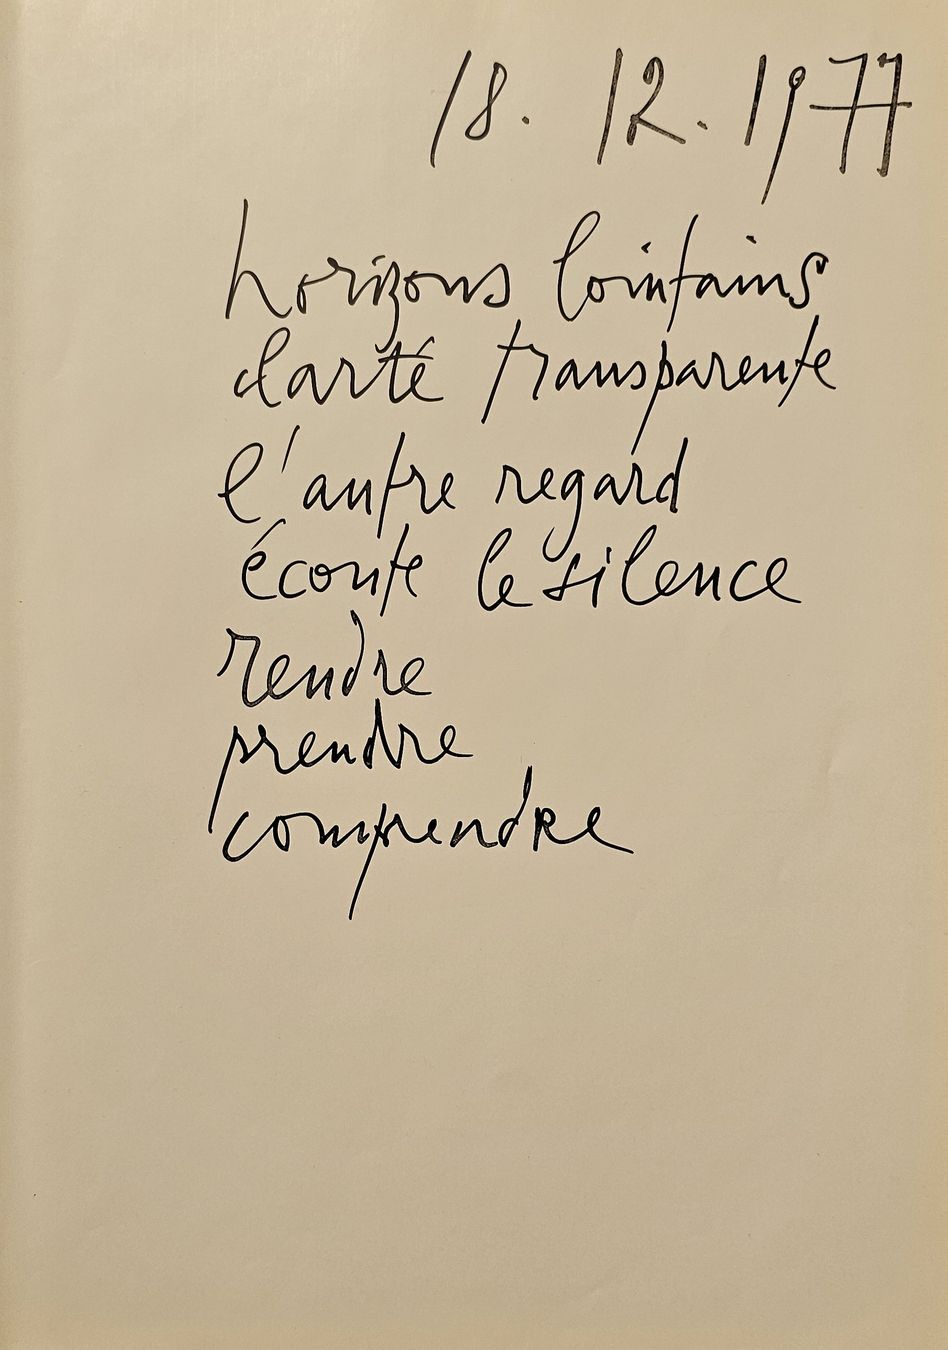 18. 12. 1977
horizons lointains
clarté transparente
l'autre regard
écoute le silence
rendre
prendre
comprendre